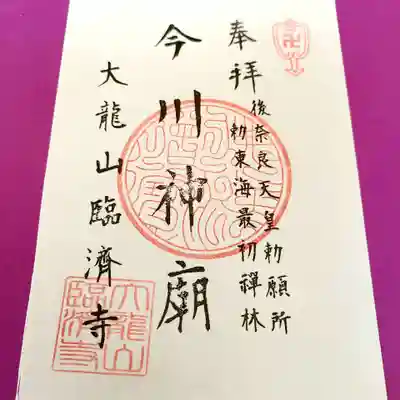 奉拝
後奈良天皇勅願所
勅東海最初禅林
今川神廟
大龍山臨濟寺
大龍山
臨濟寺